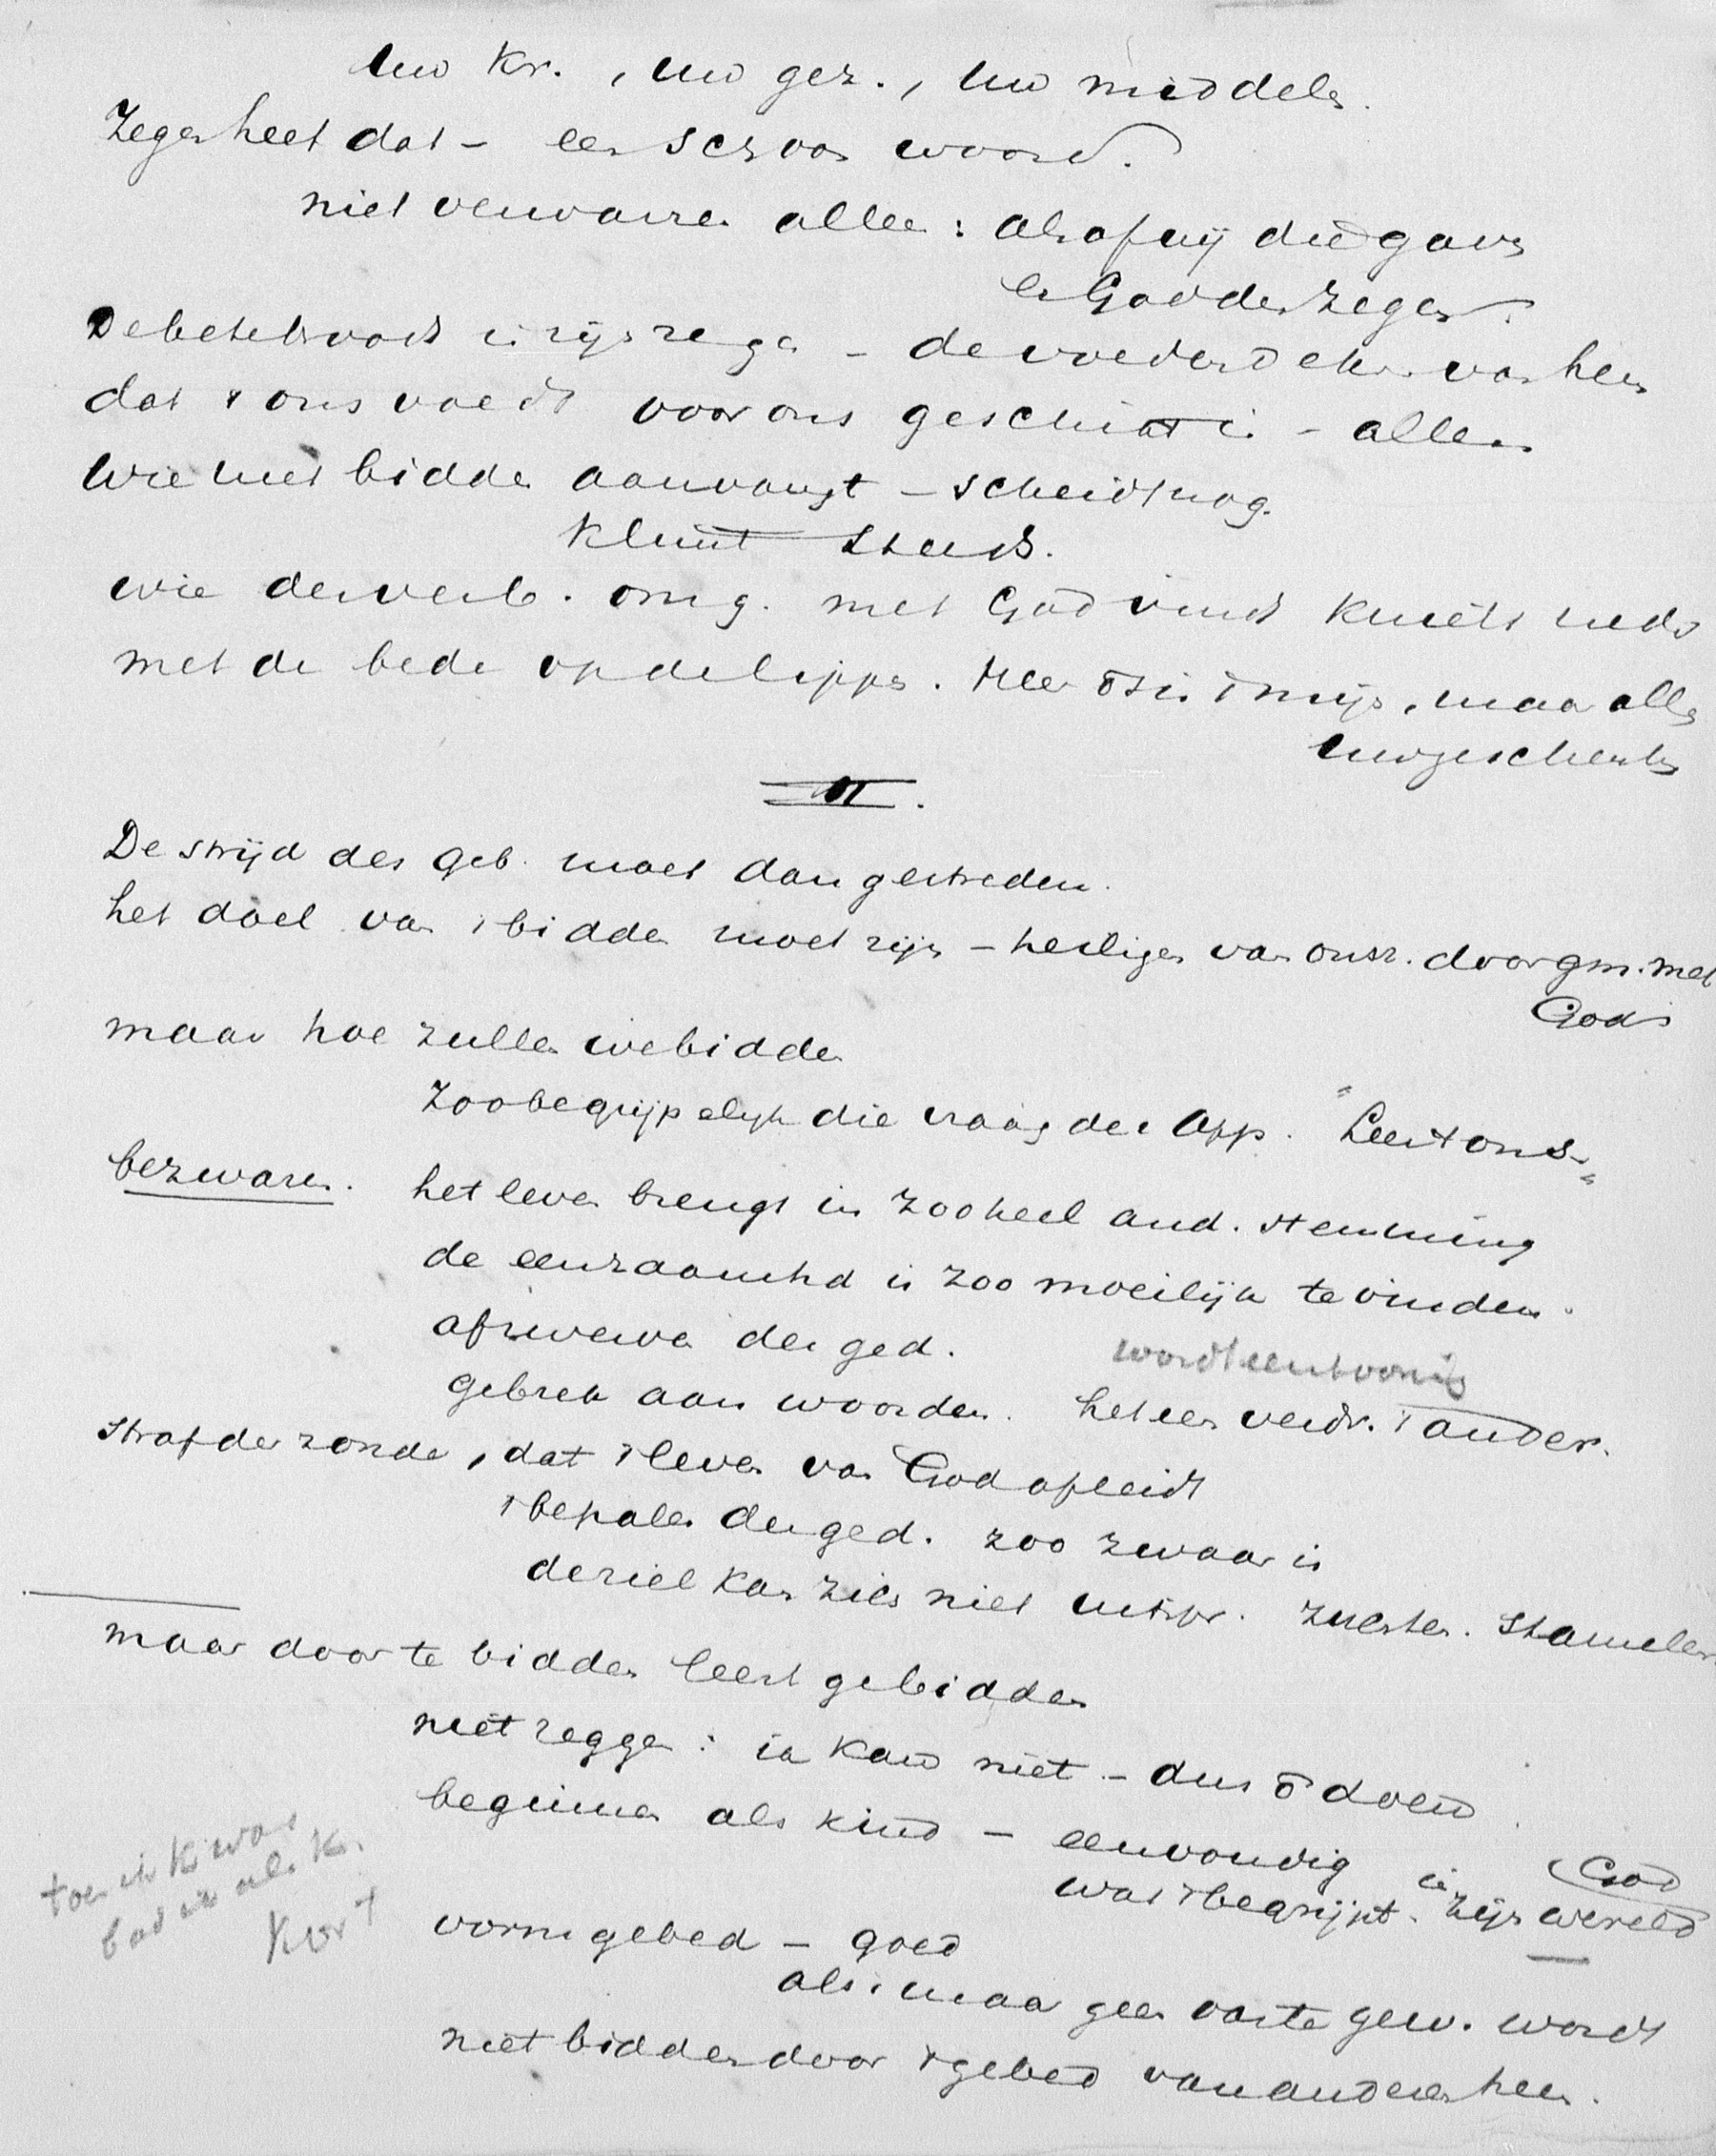 Uw kr., uw gez., uw middelen.
Zegen heet dat – een schoon woord.
niet verwarren alleen: alsof wij die gaven
en Gods zegen.
De beteekenis in zijn zegen – de van hen
dat 't ons voedt voor ons geschikt is – alleen
Wie met bidden aanvangt – scheidt nog.
klimt steeds.
wie de verb. omg. met God vindt knielt neder
met de bede op de lippen. Heer is 't mijn, maar alles
Uw geschenk
II.
De strijd des geb. moet dan gestreden.
het doel van 't bidden moet zijn – heiligen van onsz. door gm. met
God
maar hoe zullen we bidden
Zoo begrijpelijk die vraag der App. "Leert ons"
bezwaren. het leven brengt in zoo heel and. stemming
de eenzaamhd is zoo moeilijk te vinden.
afzwerven der ged. wordt eentoonig
gebrek aan woorden. het een verdr. 't ander.
Straf der zonde, dat 't leven van God afleidt
't bepalen der ged. zoo zwaar is
de ziel kan zich niet uitspr. zuchten. Stamelen
maar door te bidden leert ge bidden
niet zeggen: ik kan niet – dus doen
beginnen als kind – eenvoudig in God
wat 't begrijpt. zijn wereld
toen ik k. was
bad ik als k.
kort
vormgebed – goed
als 't maar geen vaste gew. wordt
niet bidden door 't gebed van anderen heen.